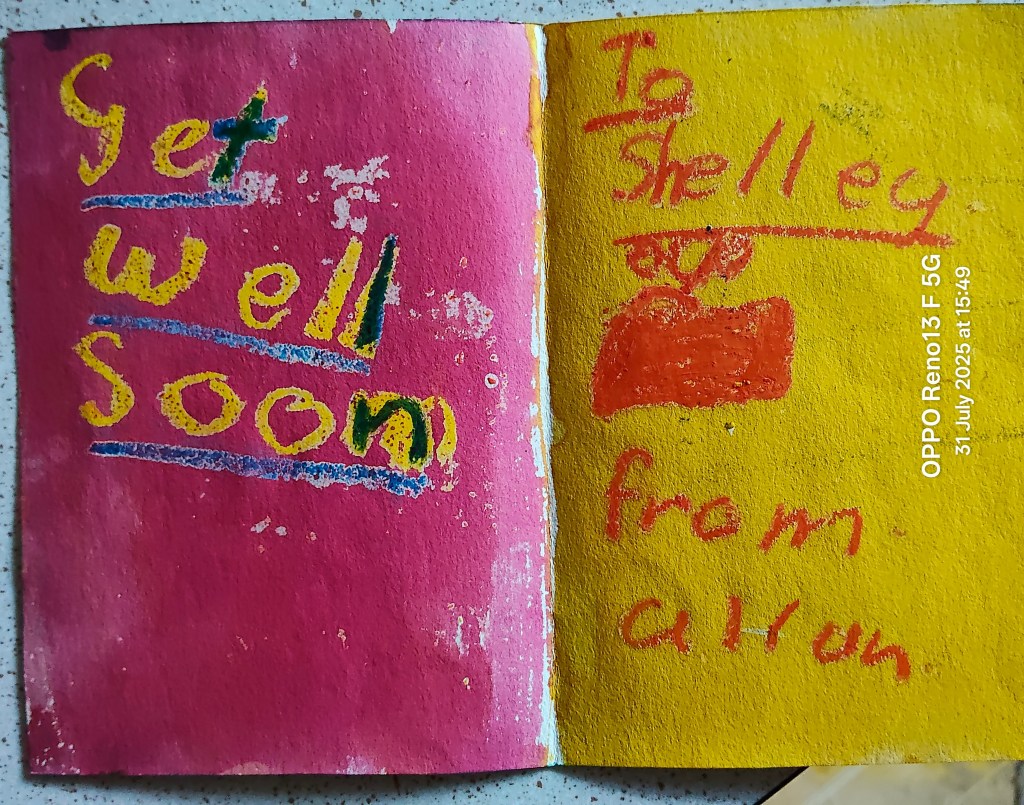 Get
well
Soon
To
Shelley
from
OPPO Reno13 F 5G
31 July 2025 at 15:49